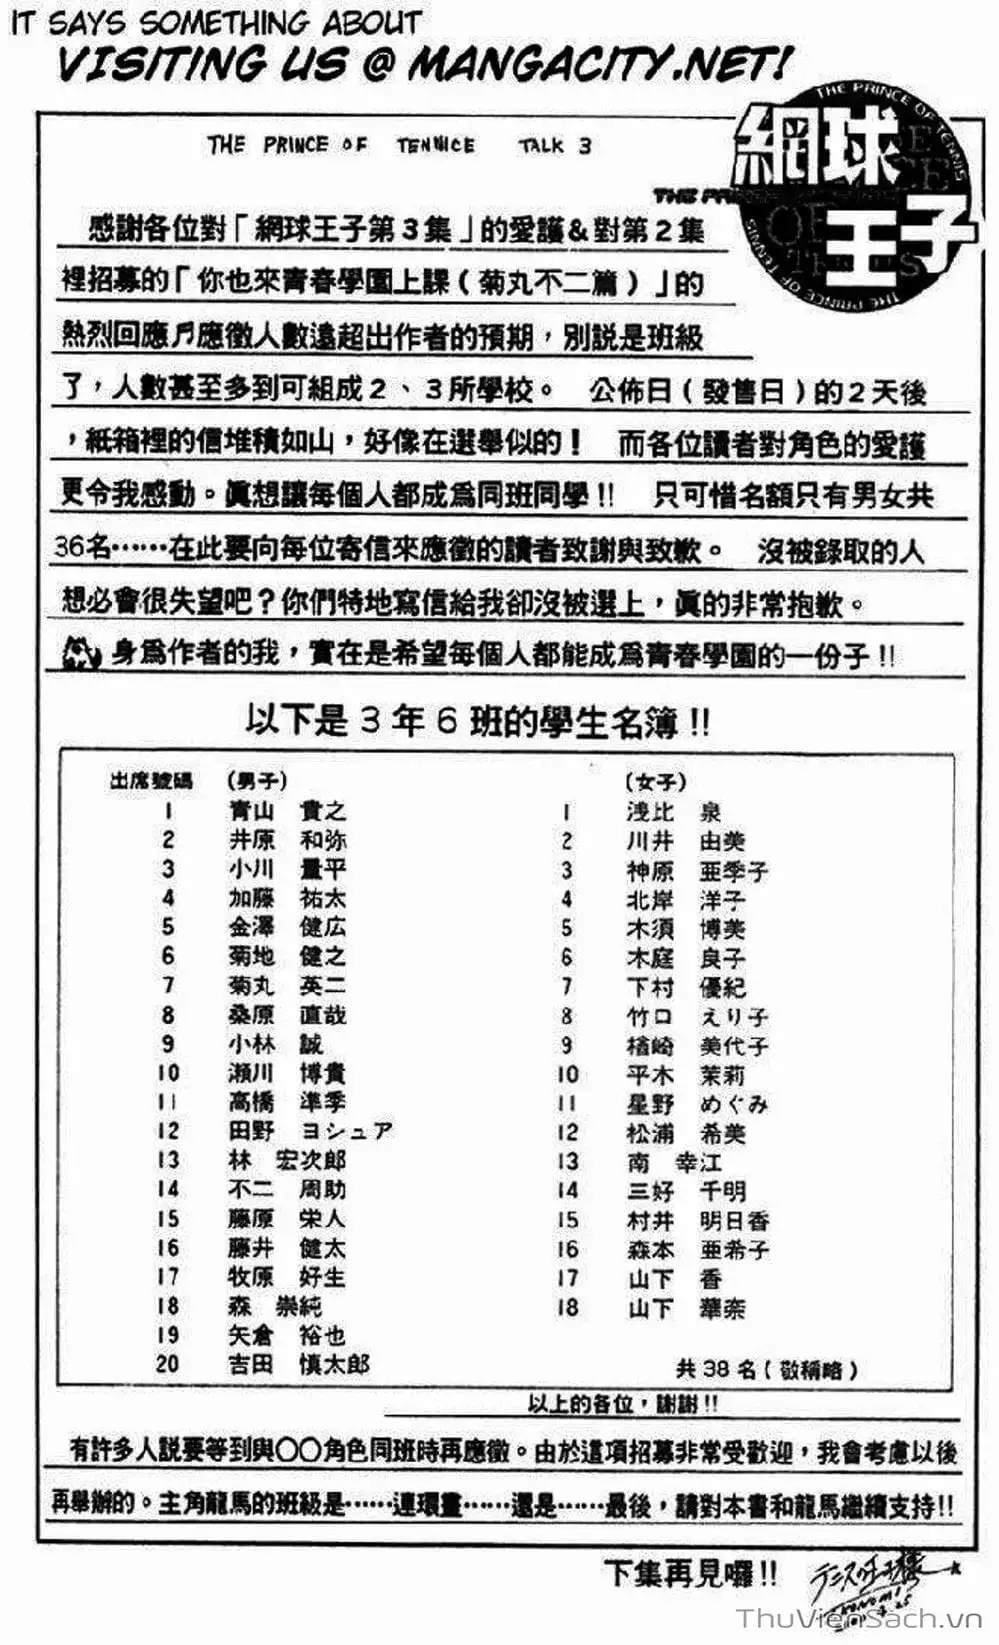 IT SAYS SOMETHING ABOUT
VISITING US @ MANGACITY.NET!
THE PRINCE OF TENNICE TALK 3
THE PRINCE OF TENNIS
網球
王子
感謝各位對「網球王子第3集」的愛護&對第2集
裡招募的「你也來青春學園上課(菊丸不二篇)」的
熱烈回應♬應徵人數遠超出作者的預期，別説是班級
了，人數甚至多到可組成2、3所學校。 公佈日(發售日)的2天後
，紙箱裡的信堆積如山，好像在選舉似的! 而各位讀者對角色的愛護
更令我感動。眞想讓每個人都成爲同班同學!! 只可惜名額只有男女共
36名……在此要向每位寄信來應徵的讀者致謝與致歉。 沒被錄取的人
想必會很失望吧?你們特地寫信給我卻沒被選上，眞的非常抱歉。
身爲作者的我，實在是希望每個人都能成爲青春學園的一份子!!
以下是3年6班的學生名簿!!
出席號碼 (男子) (女子)
1 青山 貴之 1 浅比 泉
2 井原 和弥 2 川井 由美
3 小川 量平 3 神原 亜季子
4 加藤 祐太 4 北岸 洋子
5 金澤 健広 5 木須 博美
6 菊地 健之 6 木庭 良子
7 菊丸 英二 7 下村 優紀
8 桑原 直哉 8 竹口 えり子
9 小林 誠 9 楢崎 美代子
10 瀬川 博貴 10 平木 茉莉
11 高橋 準季 11 星野 めぐみ
12 田野 ヨシュア 12 松浦 希美
13 林 宏次郎 13 南 幸江
14 不二 周助 14 三好 千明
15 藤原 栄人 15 村井 明日香
16 藤井 健太 16 森本 亜希子
17 牧原 好生 17 山下 香
18 森 崇純 18 山下 華奈
19 矢倉 裕也
20 吉田 慎太郎 共38名(敬稱略)
以上的各位，謝謝!!
有許多人説要等到與〇〇角色同班時再應徵。由於這項招募非常受歡迎，我會考慮以後
再舉辦的。主角龍馬的班級是……連環畫……還是……最後，請對本書和龍馬繼續支持!!
下集再見囉!!
テニスの王子様
ThuVienSach.vn